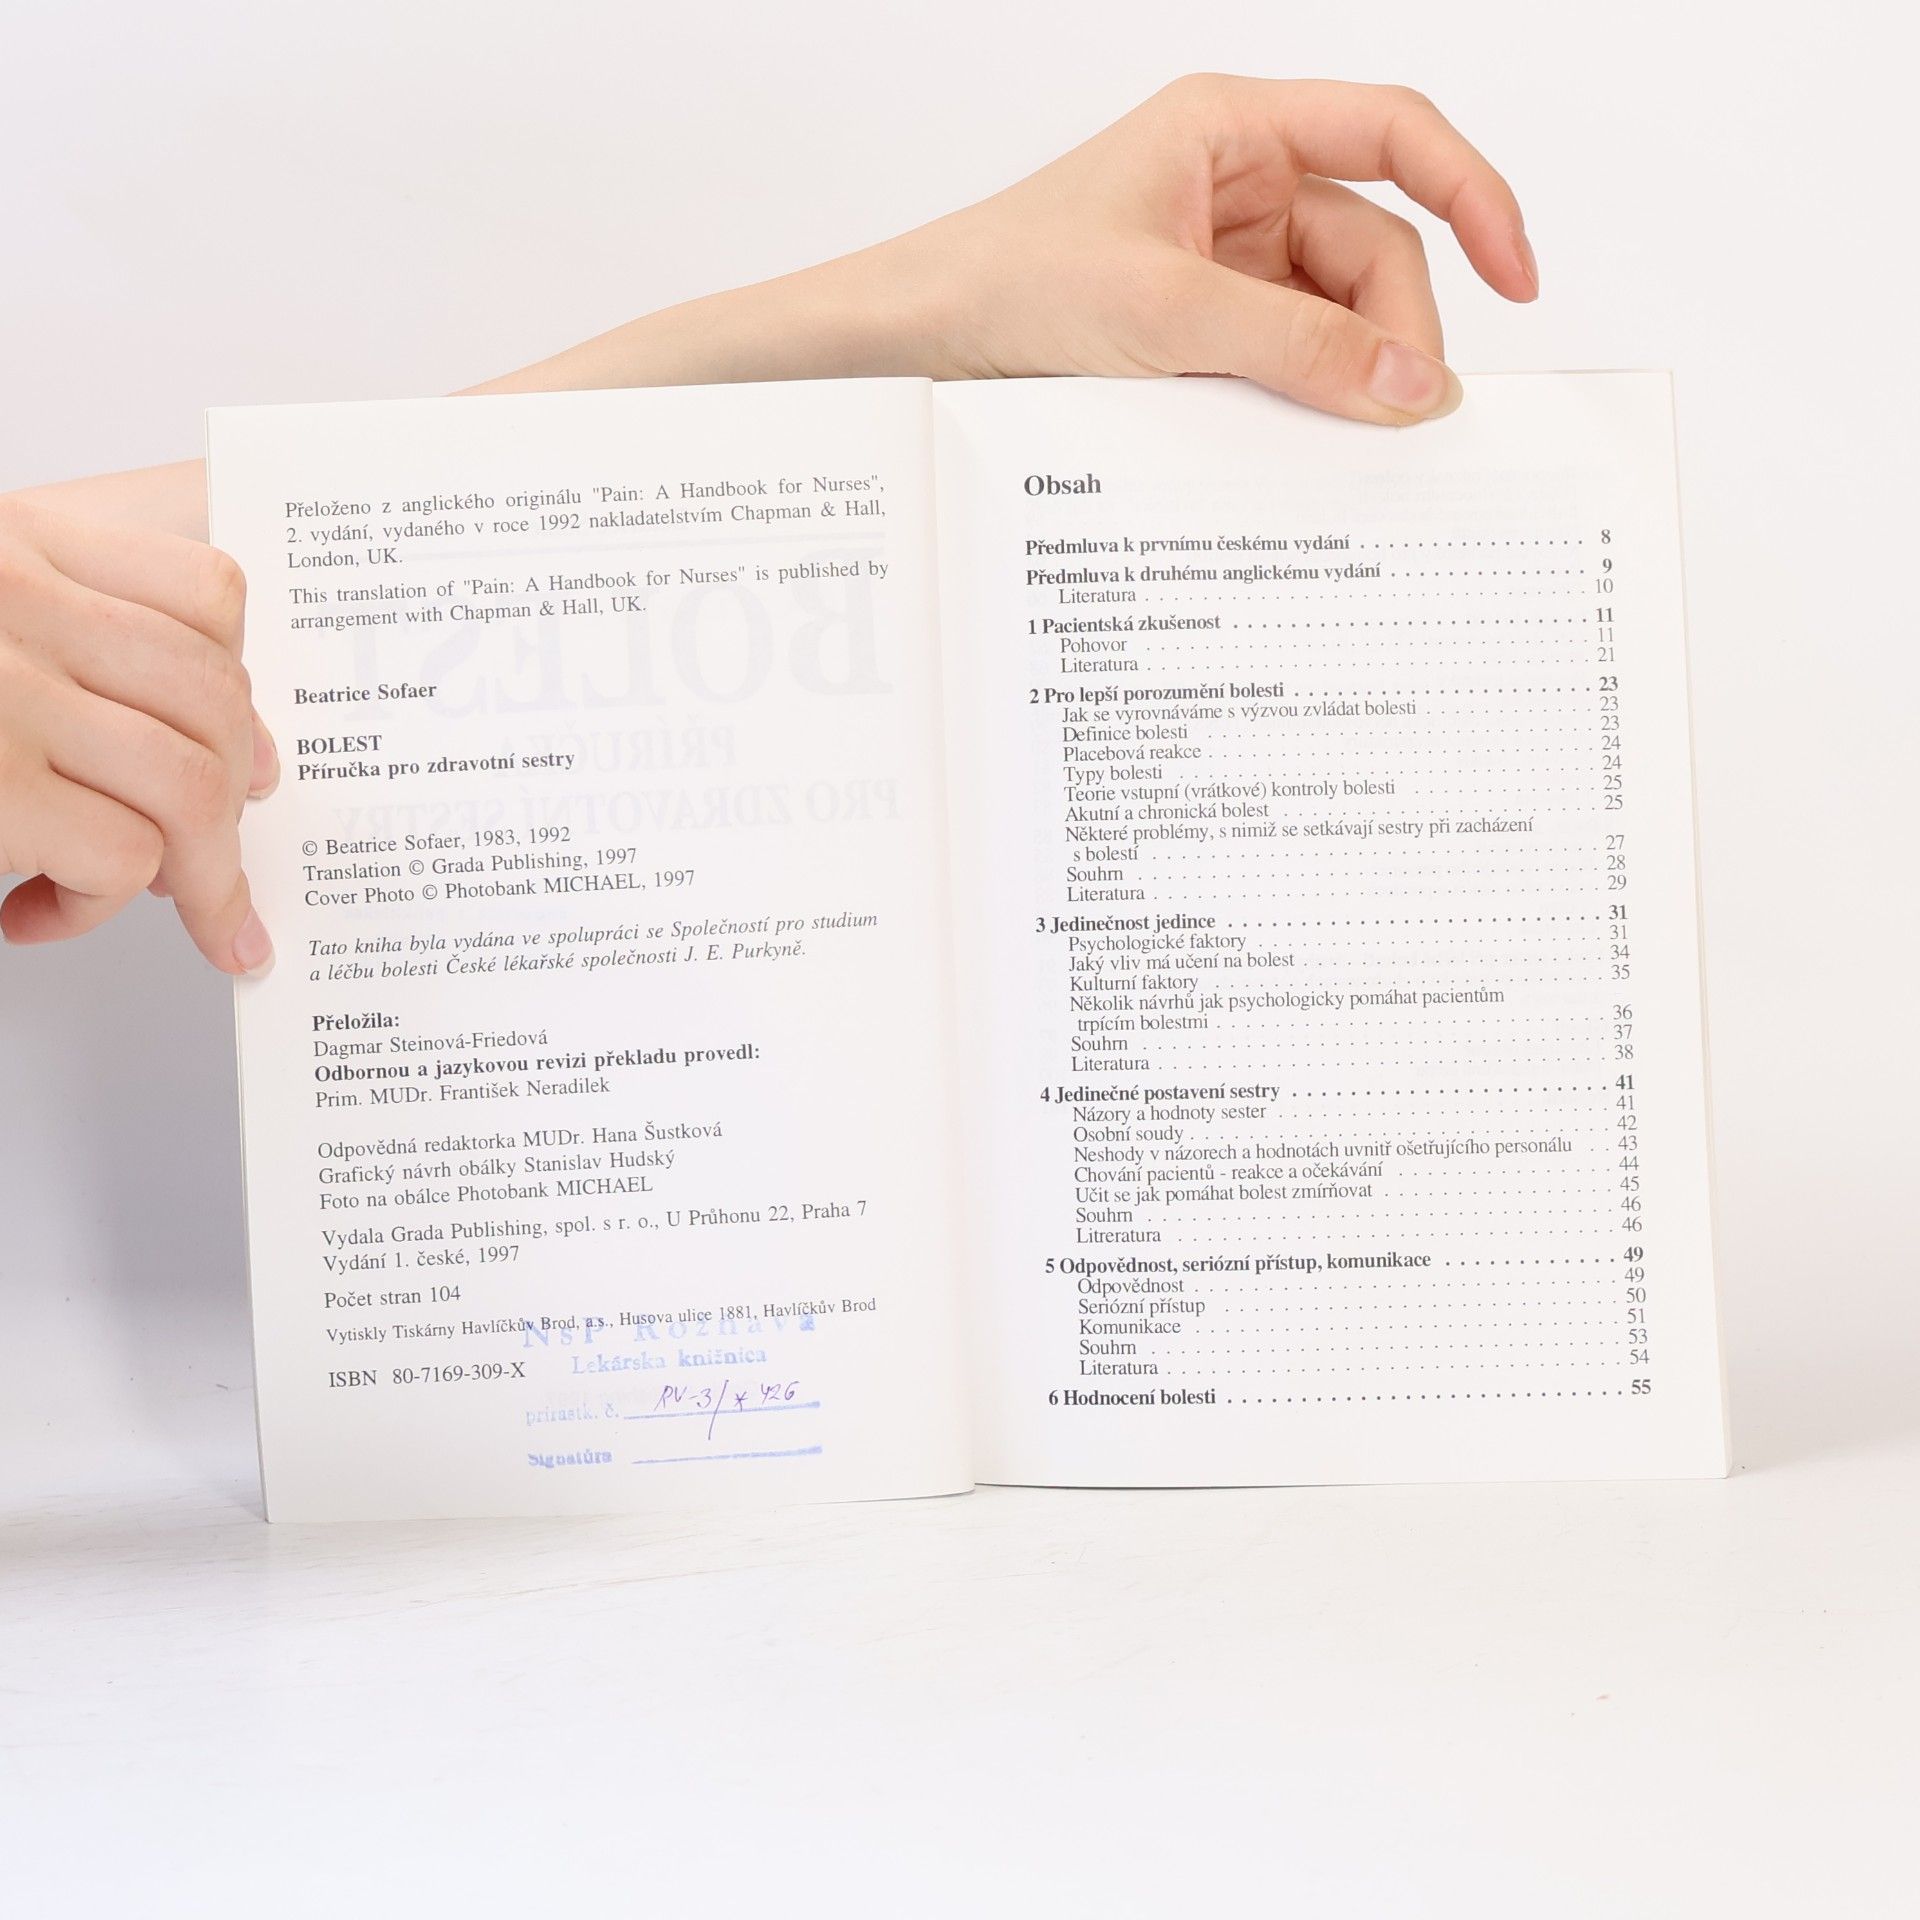 Přeloženo z anglického originálu "Pain: A Handbook for Nurses",
2. vydání, vydaného v roce 1992 nakladatelstvím Chapman & Hall,
London, UK.
This translation of "Pain: A Handbook for Nurses" is published by
arrangement with Chapman & Hall, UK.
Beatrice Sofaer
BOLEST
Příručka pro zdravotní sestry
© Beatrice Sofaer, 1983, 1992
Translation © Grada Publishing, 1997
Cover Photo © Photobank MICHAEL, 1997
Tato kniha byla vydána ve spolupráci se Společností pro studium
a léčbu bolesti České lékařské společnosti J. E. Purkyně.
Přeložila:
Dagmar Steinová-Friedová
Odbornou a jazykovou revizi překladu provedl:
Prim. MUDr. František Neradilek
Odpovědná redaktorka MUDr. Hana Šustková
Grafický návrh obálky Stanislav Hudský
Foto na obálce Photobank MICHAEL
Vydala Grada Publishing, spol. s r. o., U Průhonu 22, Praha 7
Vydání 1. české, 1997
Počet stran 104
Vytiskly Tiskárny Havlíčkův Brod, a.s., Husova ulice 1881, Havlíčkův Brod
NsP Rožňava
Lekárska knižnica
ISBN 80-7169-309-X
prírastk. č. RV-3/* 426
Signatúra
Obsah
Předmluva k prvnímu českému vydání . . . . . . . . . . . . . . . . 8
Předmluva k druhému anglickému vydání . . . . . . . . . . . . . . 9
Literatura . . . . . . . . . . . . . . . . . . . . . . . . . . . . . . 10
1 Pacientská zkušenost . . . . . . . . . . . . . . . . . . . . . . . . . 11
Pohovor . . . . . . . . . . . . . . . . . . . . . . . . . . . . . . 11
Literatura . . . . . . . . . . . . . . . . . . . . . . . . . . . . . . 21
2 Pro lepší porozumění bolesti . . . . . . . . . . . . . . . . . . . . . 23
Jak se vyrovnáváme s výzvou zvládat bolesti . . . . . . . . . . . . 23
Definice bolesti . . . . . . . . . . . . . . . . . . . . . . . . . . . 23
Placebová reakce . . . . . . . . . . . . . . . . . . . . . . . . . . 24
Typy bolesti . . . . . . . . . . . . . . . . . . . . . . . . . . . . 24
Teorie vstupní (vrátkové) kontroly bolesti . . . . . . . . . . . . . 25
Akutní a chronická bolest . . . . . . . . . . . . . . . . . . . . . . 25
Některé problémy, s nimiž se setkávají sestry při zacházení
s bolestí . . . . . . . . . . . . . . . . . . . . . . . . . . . . . . 27
Souhrn . . . . . . . . . . . . . . . . . . . . . . . . . . . . . . . 28
Literatura . . . . . . . . . . . . . . . . . . . . . . . . . . . . . . 29
3 Jedinečnost jedince . . . . . . . . . . . . . . . . . . . . . . . . . . 31
Psychologické faktory . . . . . . . . . . . . . . . . . . . . . . . . 31
Jaký vliv má učení na bolest . . . . . . . . . . . . . . . . . . . . 34
Kulturní faktory . . . . . . . . . . . . . . . . . . . . . . . . . . 35
Několik návrhů jak psychologicky pomáhat pacientům
trpícím bolestmi . . . . . . . . . . . . . . . . . . . . . . . . . . 36
Souhrn . . . . . . . . . . . . . . . . . . . . . . . . . . . . . . . 37
Literatura . . . . . . . . . . . . . . . . . . . . . . . . . . . . . . 38
4 Jedinečné postavení sestry . . . . . . . . . . . . . . . . . . . . . . 41
Názory a hodnoty sester . . . . . . . . . . . . . . . . . . . . . . . 41
Osobní soudy . . . . . . . . . . . . . . . . . . . . . . . . . . . . 42
Neshody v názorech a hodnotách uvnitř ošetřujícího personálu . . 43
Chování pacientů - reakce a očekávání . . . . . . . . . . . . . . 44
Učit se jak pomáhat bolest zmírňovat . . . . . . . . . . . . . . . 45
Souhrn . . . . . . . . . . . . . . . . . . . . . . . . . . . . . . . 46
Litreratura . . . . . . . . . . . . . . . . . . . . . . . . . . . . . 46
5 Odpovědnost, seriózní přístup, komunikace . . . . . . . . . . . . 49
Odpovědnost . . . . . . . . . . . . . . . . . . . . . . . . . . . . 49
Seriózní přístup . . . . . . . . . . . . . . . . . . . . . . . . . . 50
Komunikace . . . . . . . . . . . . . . . . . . . . . . . . . . . . . 51
Souhrn . . . . . . . . . . . . . . . . . . . . . . . . . . . . . . . 53
Literatura . . . . . . . . . . . . . . . . . . . . . . . . . . . . . . 54
6 Hodnocení bolesti . . . . . . . . . . . . . . . . . . . . . . . . . . 55